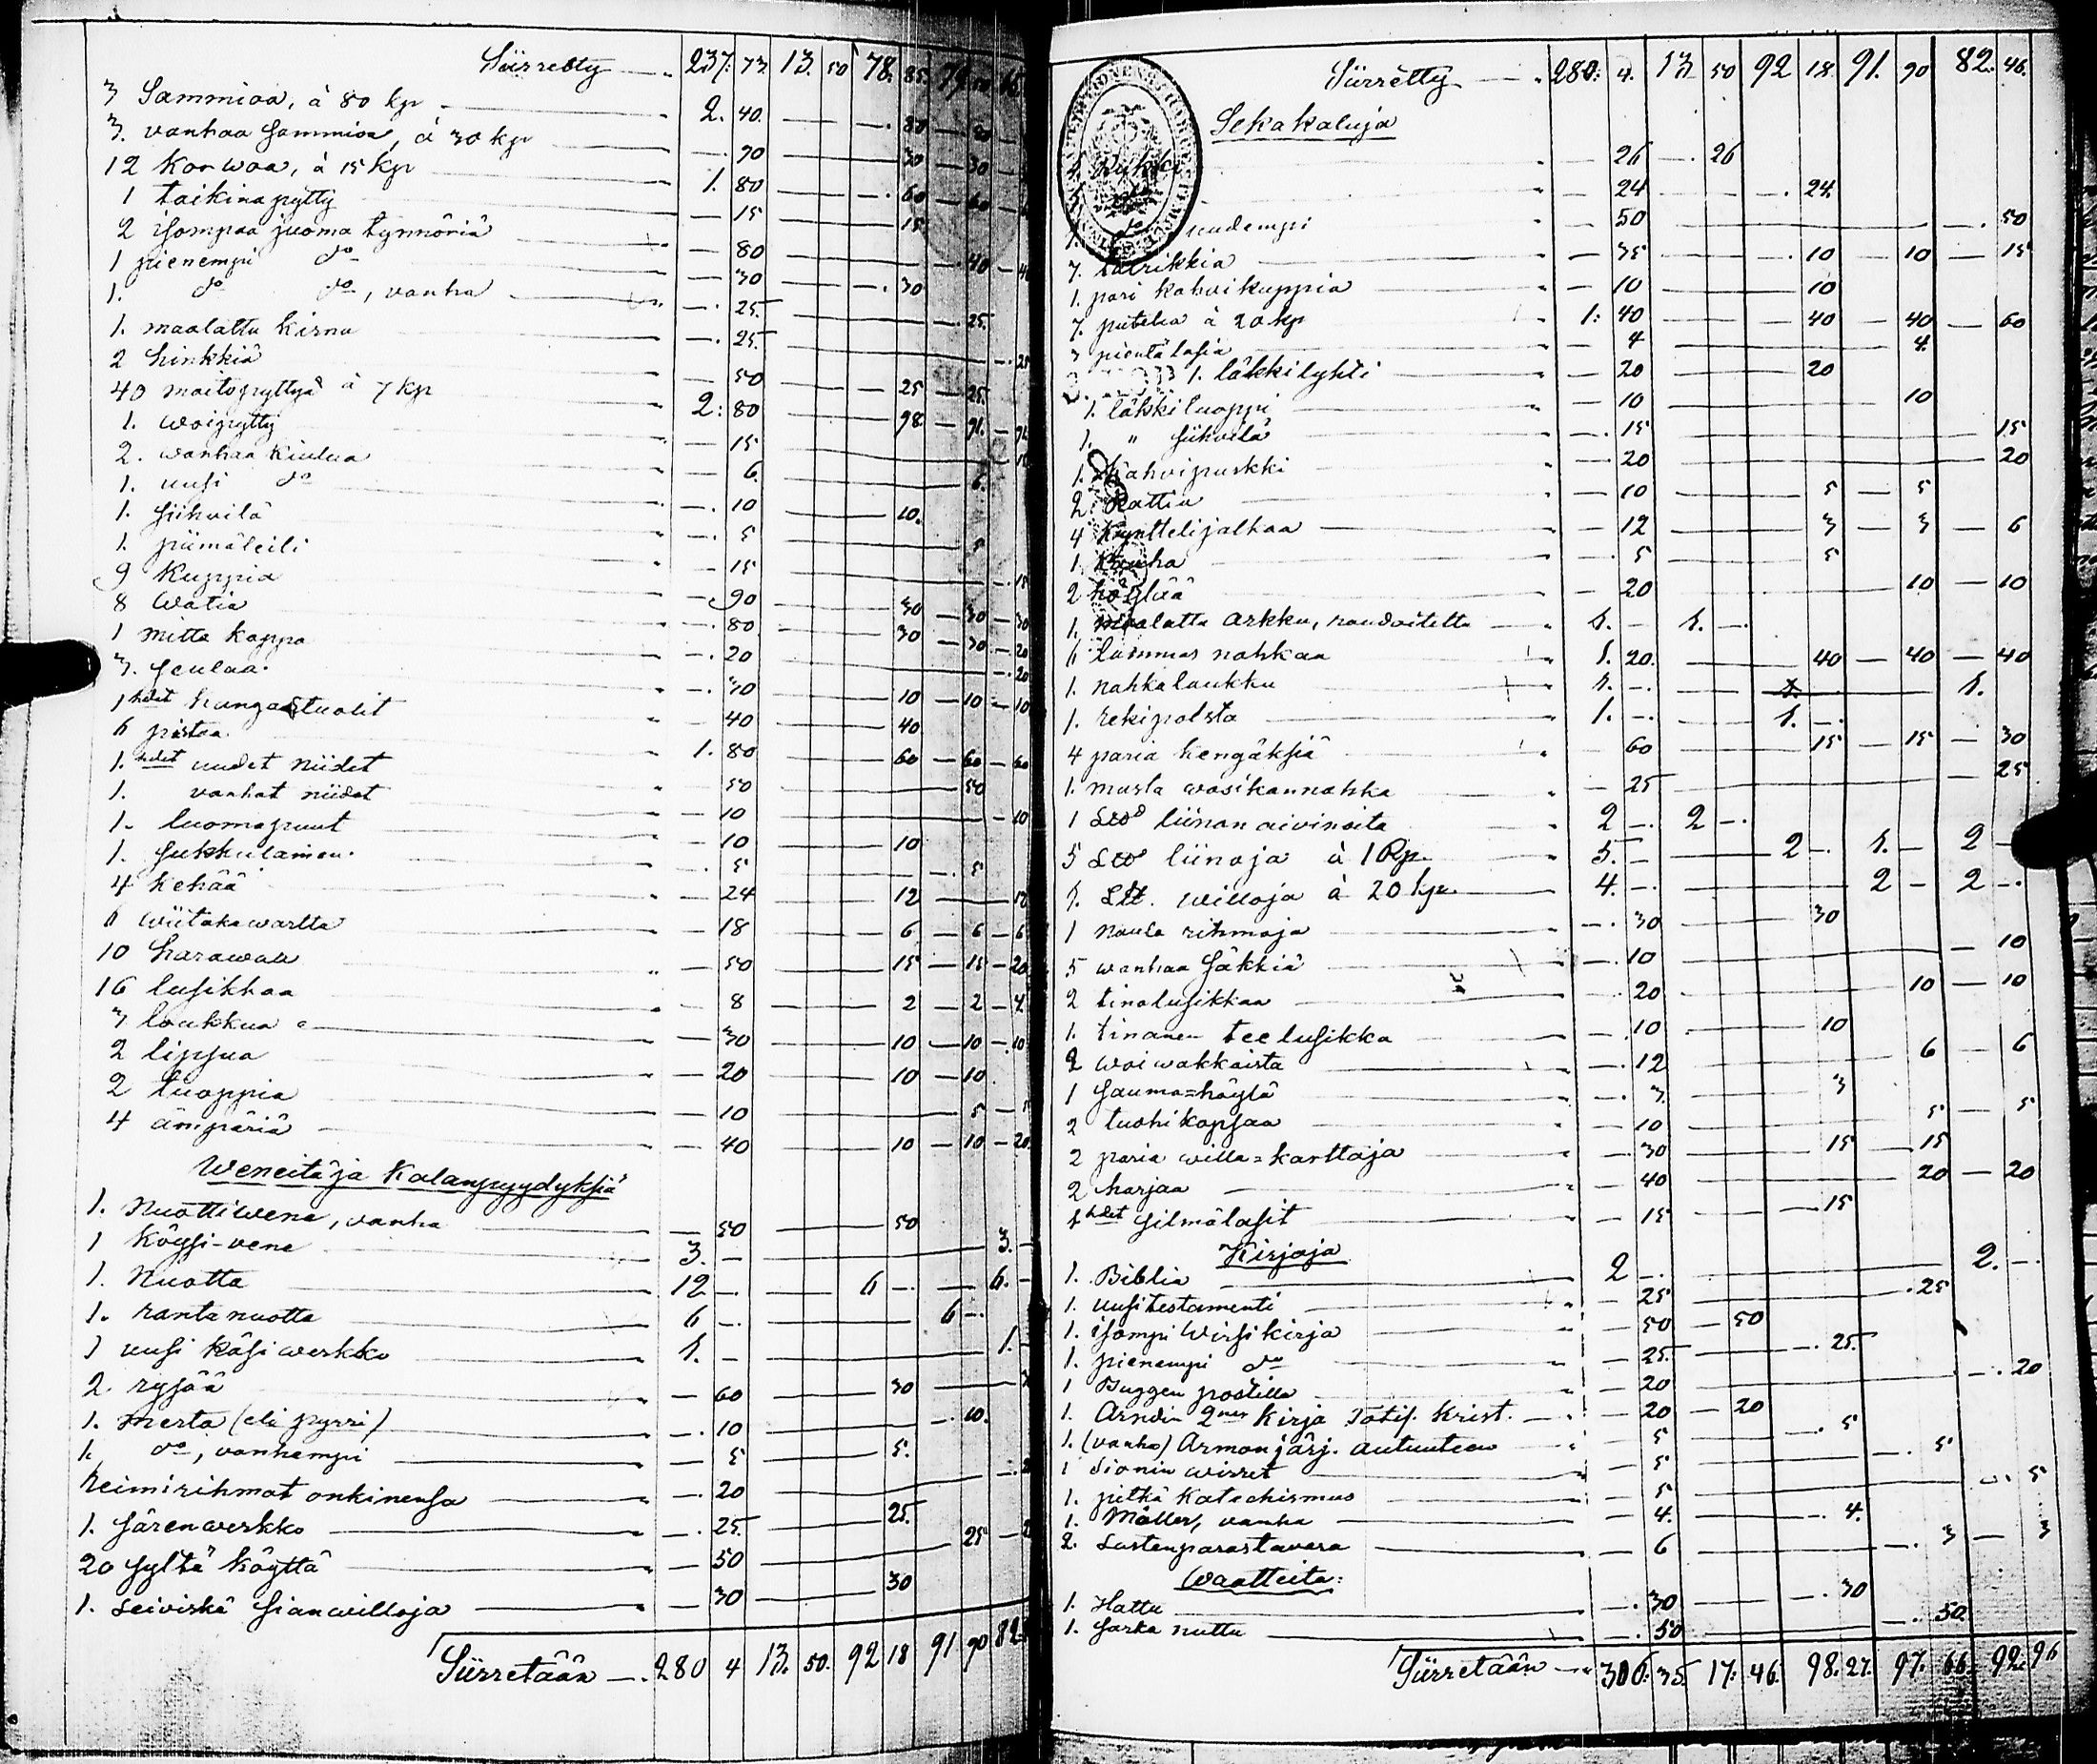 Siirretty 237: 73. 13. 50 78. 85. 79
3 Sammioa, à 80 kp 2. 40. 80 80
3. vanhaa sammioa, à 30 kp 90 30 30
12 Korwoa, à 15 kp 1. 80 60 60
1 taikinapytty 15 15
2 isompaa juoma tynnöriä 80 40 4
1 pienempi do 30 30
1. do do, vanha 25. 25.
1. maalattu kirnu 25. 25
2 hinkkiä 50 25 25.
40 maitopyttyä à 7 kp 2: 80 98 91. 91
1. woipytty 15 15
2. wanhaa kiulua 6. 6.
1. uusi do 10 10.
1. siihvilä 5 5
1. piimäleili 15 15
9 Kuppia 90 30 30 30
8 Watia 80 30 30 20
1 mitta kappa 20 20
3. seulaa. 30 10 10 10
1 hdet hangastuolit 40 40
6 pirtaa 1. 80 60 60 60
1. hdet uudet niidet 50 50
1. vanhat niidet 10 10
1. luomapuut 10 10
1. sukkulainen. 5 5
4 kehää 24 12 12
6 wiitakewartta 18 6 6 6
10 harawaa 50 15 15 20
16 lusikkaa 8 2 2 4
3 loukkua 30 10 10 10
2 lipsua 20 10 10
2 tuoppia 10 5 5
4 ämpäriä 40 10 10 20
Weneitä ja Kalanpyydyksiä
1. Nuottiwene, vanha 50 50
1 Köysi-vene 3. – 3.
1. Nuotta 12 – 6 – 6. –
1. rantanuotta 6 – 6 –
1 uusi käsiwerkko 1. – 1.
2. rysää 60 30
1. merta (eli pyrri) 10 10.
1. do, vanhempi 5 5.
heimirihmat onkinensa 20
1. särenwerkko 25. 25.
20 syltä köyttä 50 25 2
1. Leiviskä sianwilloja 30 30
Siirretään 280 4 13. 50. 92 18 91. 90 82
Siirretty 280: 4. 13 50 92 18. 91. 90 82. 46.
Sekakaluja
26 26
24 24
1. do uudempi 50 50
7. talrikkia 35 10 10 15
1. pari kahvikuppia 10 10
7. putelia à 20 kp 1: 40 40 40 60
3 pientä lasia 4 4.
1. läkkilyhti 20 20
1. läkkituoppi 10 10
1. " siihvilä 15 15
1. Kahvipuskki 20 20
2 Rattia 10 5 5
4 Kynttelijalkaa 12 3 3 6
1. Kauha 5 5
2 höylää 20 10 10
1. maalattu Arkku, raudoitettu 1. – 1. –
6 lammas nahkaa 1. 20. 40 40 40
1. nahkalaukku 1. – 1.
1. rekipolsta 1. – 1. –
4 paria kengäksiä 60 15 15 30
1. musta wasikannahka 25 25
1 Lew liinan aivinoita 2 – 2 –
5 Lew liinoja à 1 Rp. 5. – 2 – 1. – 2 –
1. Ltt. willoja à 20 kp. 4. – 2 – 2 –
1 naula rihmoja 30 30
5 wanhaa säkkiä 10 10
2 tinalusikkaa 20 10 10
1. tinanen teelusikka 10 10
2 woiwakkaista 12 6 6
1 sauma=höylä 3 3
2 tuohikopsaa 10 5 5
2 paria willa=karttoja 30 15 15
2 harjaa 40 20 20
1 hdet silmälasit 15 15
Kirjoja
1. Biblia 2 – 2. –
1. uusitestamenti 25 25
1. isompi Wirsikirja 50 50
1. pienempi do 25. 25.
1 Buggen postilla 20 20
1. Arndin 2nen kirja Totis. Krist. 20 20
1. (vanha) Armonjärj. autuuteen 5 5
1 Sionin wirret 5 5
1. pitkä Katechismus 5 5
1. Möller, vanha 4. 4.
2. Lastenparastavara 6 3 3
Waatteita:
1. Hattu 30 30
1. sarka nuttu 50 50.
Siirretään 306. 35. 17. 46. 98. 27. 97. 66. 92. 96